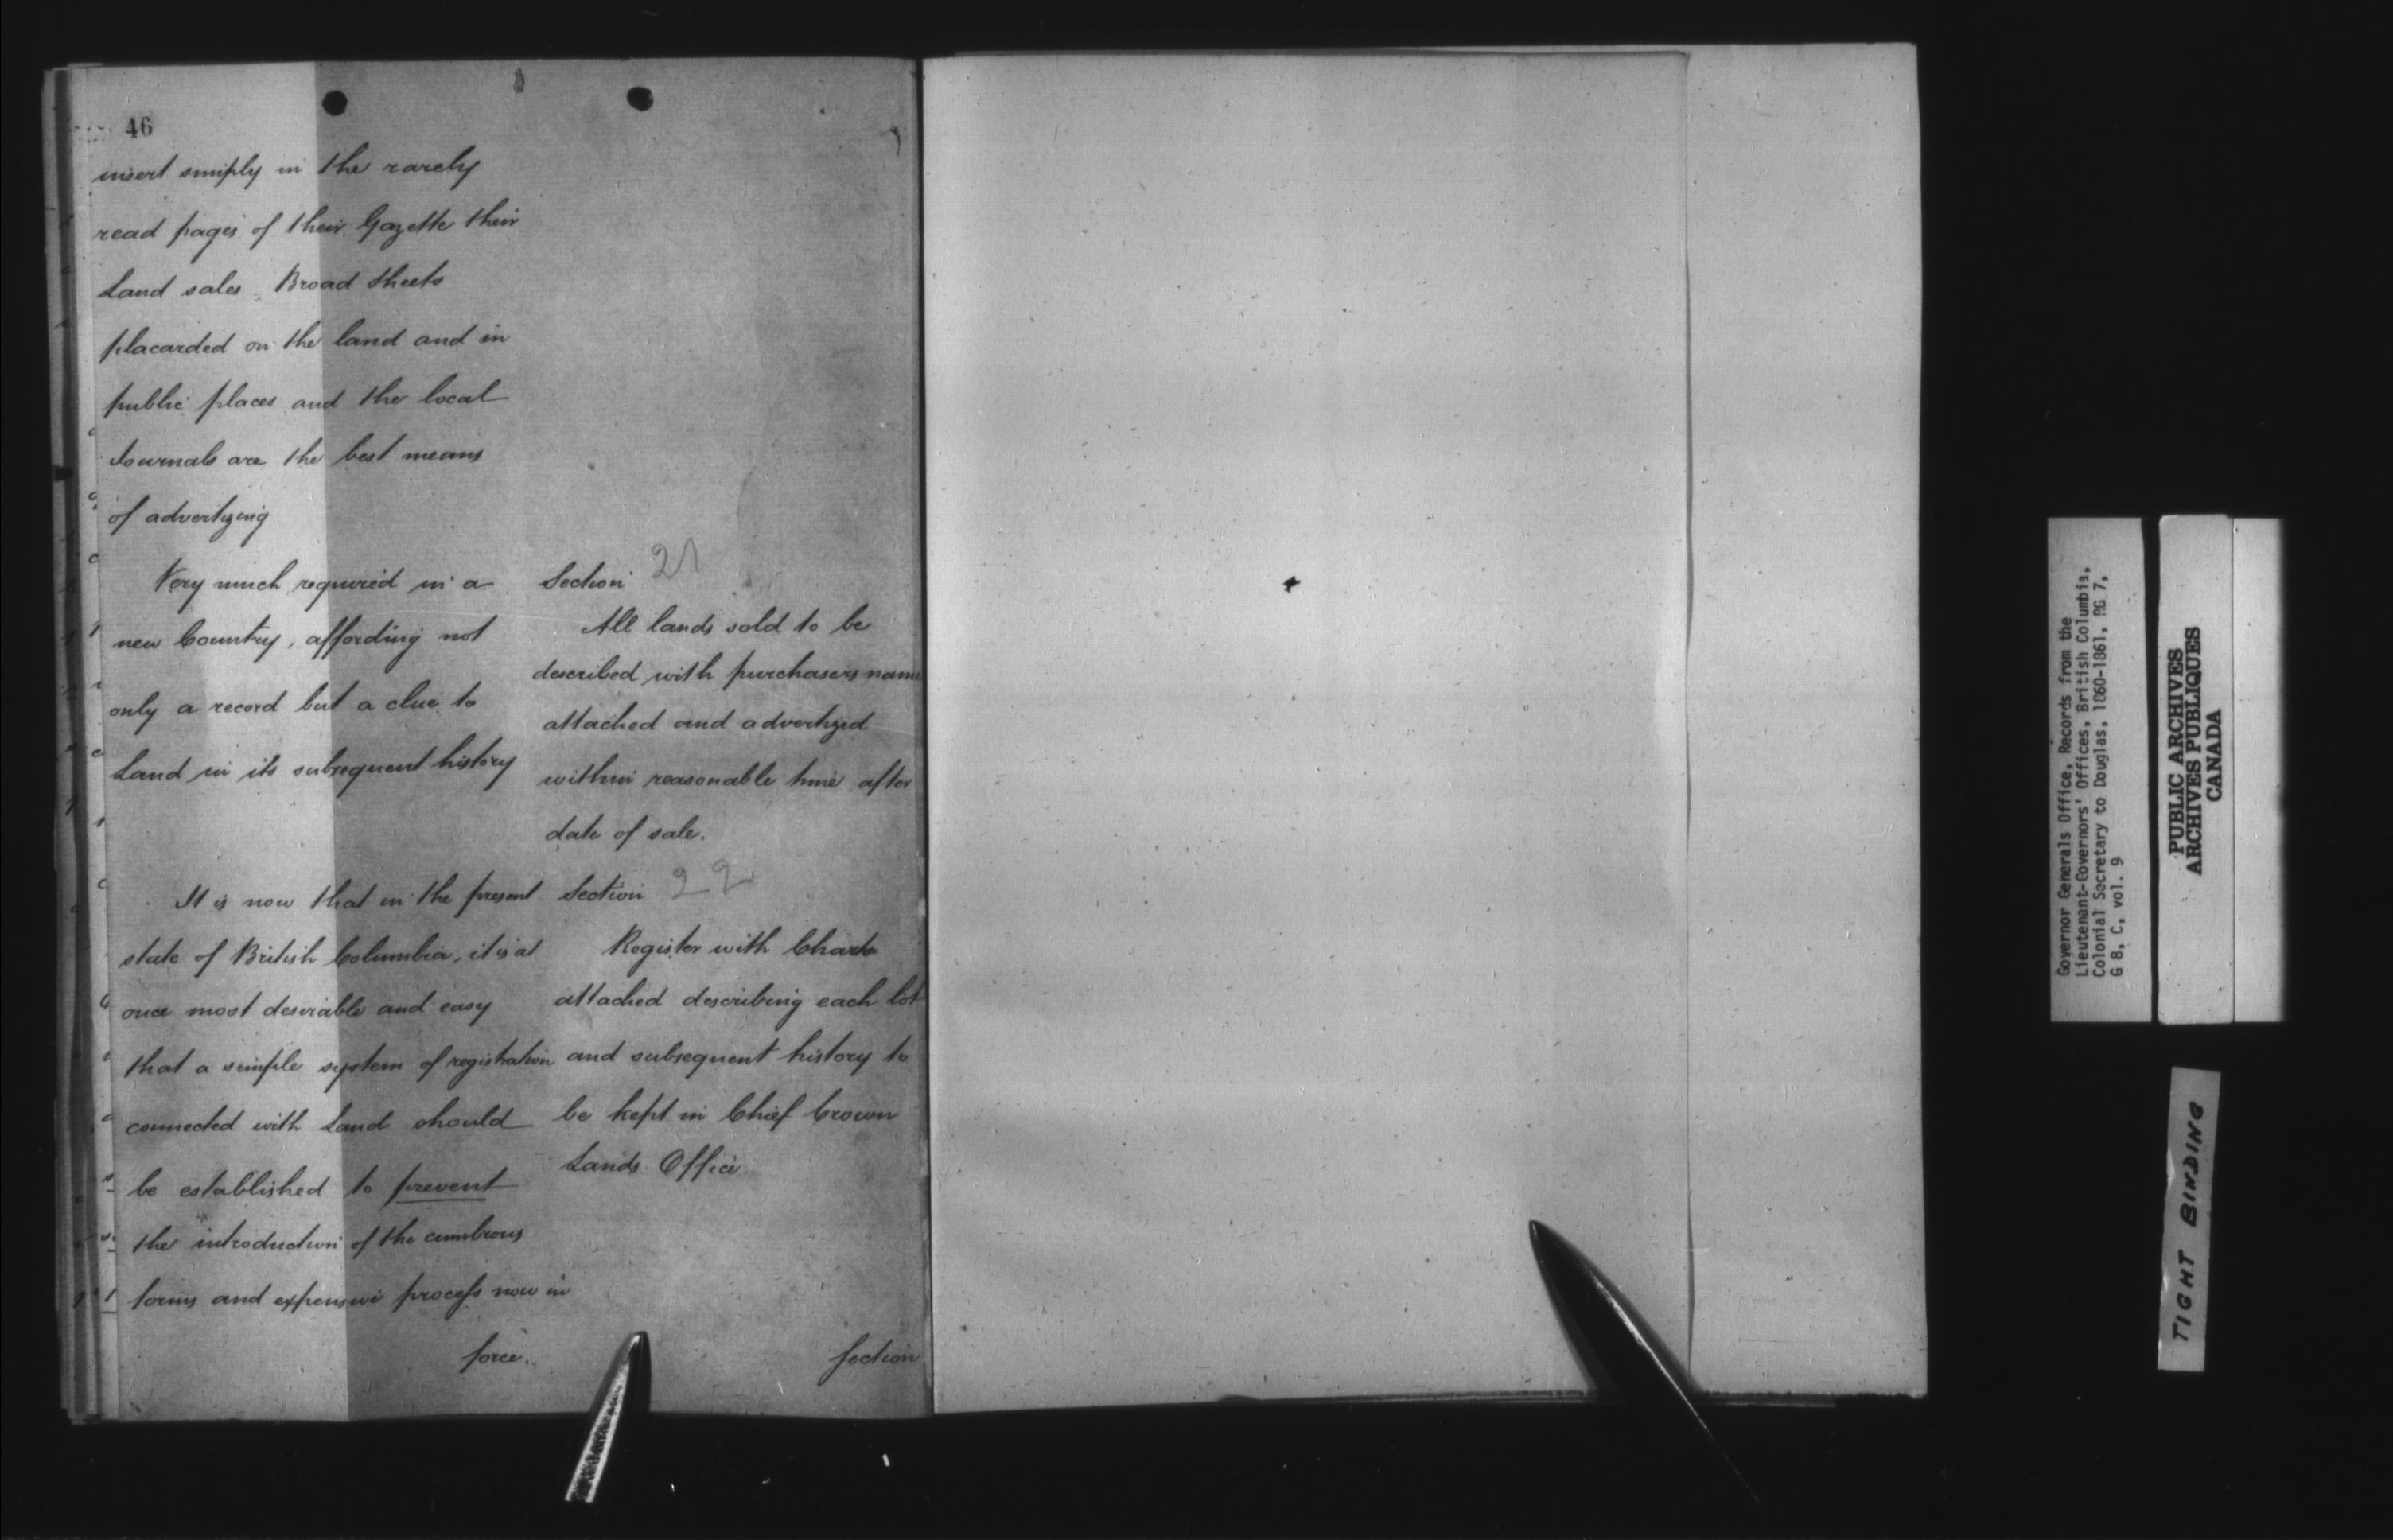 46
insert simply in the rarely
read pages of their Gazette their
Land sales. Broad sheets
placarded on the land and in
public places and the local
Journals are the best means
of advertizing
Very much required in a
new Country, affording not
only a record but a clue to
Land in its subsequent history
It is now that in the present
state of British Columbia, it is at
once most desirable and easy
that a simple system of registration
connected with Land should
be established to prevent
the introduction of the cumbrous
forms and expensive process now in
force.
Section 21
All lands sold to be
described with purchasers name
attached and advertized
within reasonable time after
date of sale.
Section 22
Register with Charts
attached describing each lot
and subsequent history to
be kept in Chief Crown
Lands Office.
Section
Governor Generals Office, Records from the
Lieutenant-Governors' Offices, British Columbia,
Colonial Secretary to Douglas, 1860-1861, RG 7,
G 8, C, vol. 9
PUBLIC ARCHIVES
ARCHIVES PUBLIQUES
CANADA
TIGHT BINDING